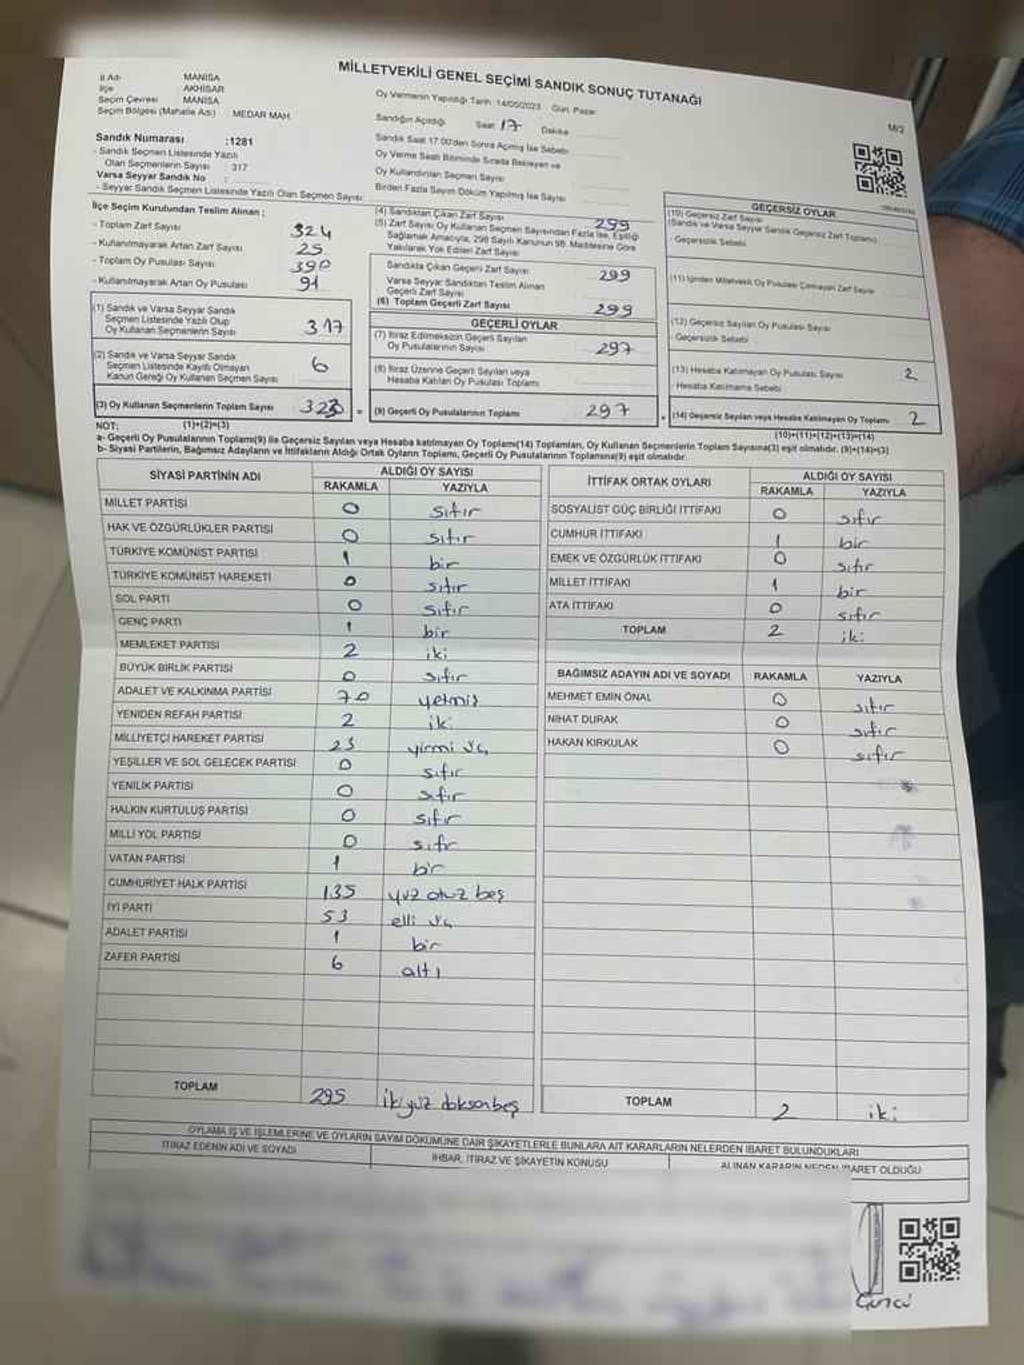 MİLLETVEKİLİ GENEL SEÇİMİ SANDIK SONUÇ TUTANAĞI
İl Adı MANİSA
İlçe AKHİSAR
Seçim Çevresi MANİSA
Seçim Bölgesi (Mahalle Adı) MEDAR MAH.
Oy Vermenin Yapıldığı Tarih :14/05/2023 Gün: Pazar
Sandığın Açıldığı Saat 17 Dakika
Sandık Saat 17.00'den Sonra Açılmış İse Sebebi
Oy Verme Saati Bitiminde Sırada Bekleyen ve
Oy Kullandırılan Seçmen Sayısı
Birden Fazla Sayım Döküm Yapılmış İse Sayısı
M/2
Sandık Numarası :1281
- Sandık Seçmen Listesinde Yazılı
Olan Seçmenlerin Sayısı : 317
Varsa Seyyar Sandık No :
- Seyyar Sandık Seçmen Listesinde Yazılı Olan Seçmen Sayısı
İlçe Seçim Kurulundan Teslim Alınan :
- Toplam Zarf Sayısı 324
- Kullanılmayarak Artan Zarf Sayısı 25
- Toplam Oy Pusulası Sayısı 390
- Kullanılmayarak Artan Oy Pusulası 91
(1) Sandık ve Varsa Seyyar Sandık
Seçmen Listesinde Yazılı Olup
Oy Kullanan Seçmenlerin Sayısı 317
(2) Sandık ve Varsa Seyyar Sandık
Seçmen Listesinde Kayıtlı Olmayan
Kanun Gereği Oy Kullanan Seçmen Sayısı 6
(3) Oy Kullanan Seçmenlerin Toplam Sayısı 323
(1)+(2)=(3)
(4) Sandıktan Çıkan Zarf Sayısı 299
(5) Zarf Sayısı Oy Kullanan Seçmen Sayısından Fazla İse, Eşitliği
Sağlamak Amacıyla; 298 Sayılı Kanunun 98. Maddesine Göre
Yakılarak Yok Edilen Zarf Sayısı
Sandıkta Çıkan Geçerli Zarf Sayısı 299
Varsa Seyyar Sandıktan Teslim Alınan
Geçerli Zarf Sayısı
(6) Toplam Geçerli Zarf Sayısı 299
GEÇERLİ OYLAR
(7) İtiraz Edilmeksizin Geçerli Sayılan
Oy Pusulalarının Sayısı 297
(8) İtiraz Üzerine Geçerli Sayılan veya
Hesaba Katılan Oy Pusulası Toplamı
= (9) Geçerli Oy Pusulalarının Toplamı 297
GEÇERSİZ OYLAR
(10) Geçersiz Zarf Sayısı
(Sandık ve Varsa Seyyar Sandık Geçersiz Zarf Toplamı)
- Geçersizlik Sebebi
(11) İçinden Milletvekili Oy Pusulası Çıkmayan Zarf Sayısı
(12) Geçersiz Sayılan Oy Pusulası Sayısı
- Geçersizlik Sebebi
(13) Hesaba Katılmayan Oy Pusulası Sayısı 2
- Hesaba Katılmama Sebebi
+ (14) Geçersiz Sayılan veya Hesaba Katılmayan Oy Toplamı 2
(10)+(11)+(12)+(13)=(14)
NOT:
a- Geçerli Oy Pusulalarının Toplamı(9) ile Geçersiz Sayılan veya Hesaba katılmayan Oy Toplamı(14) Toplamları, Oy Kullanan Seçmenlerin Toplam Sayısına(3) eşit olmalıdır. (9)+(14)=(3)
b- Siyasi Partilerin, Bağımsız Adayların ve İttifakların Aldığı Ortak Oyların Toplamı, Geçerli Oy Pusulalarının Toplamına(9) eşit olmalıdır.
SİYASİ PARTİNİN ADI ALDIĞI OY SAYISI
RAKAMLA YAZIYLA
MİLLET PARTİSİ 0 sıfır
HAK VE ÖZGÜRLÜKLER PARTİSİ 0 sıfır
TÜRKİYE KOMÜNİST PARTİSİ 1 bir
TÜRKİYE KOMÜNİST HAREKETİ 0 sıfır
SOL PARTİ 0 sıfır
GENÇ PARTİ 1 bir
MEMLEKET PARTİSİ 2 iki
BÜYÜK BİRLİK PARTİSİ 0 sıfır
ADALET VE KALKINMA PARTİSİ 70 yetmiş
YENİDEN REFAH PARTİSİ 2 iki
MİLLİYETÇİ HAREKET PARTİSİ 23 yirmi üç
YEŞİLLER VE SOL GELECEK PARTİSİ 0 sıfır
YENİLİK PARTİSİ 0 sıfır
HALKIN KURTULUŞ PARTİSİ 0 sıfır
MİLLİ YOL PARTİSİ 0 sıfır
VATAN PARTİSİ 1 bir
CUMHURİYET HALK PARTİSİ 135 yüz otuz beş
İYİ PARTİ 53 elli üç
ADALET PARTİSİ 1 bir
ZAFER PARTİSİ 6 altı
TOPLAM 295 ikiyüz doksanbeş
İTTİFAK ORTAK OYLARI ALDIĞI OY SAYISI
RAKAMLA YAZIYLA
SOSYALİST GÜÇ BİRLİĞİ İTTİFAKI 0 sıfır
CUMHUR İTTİFAKI 1 bir
EMEK VE ÖZGÜRLÜK İTTİFAKI 0 sıfır
MİLLET İTTİFAKI 1 bir
ATA İTTİFAKI 0 sıfır
TOPLAM 2 iki
BAĞIMSIZ ADAYIN ADI VE SOYADI RAKAMLA YAZIYLA
MEHMET EMİN ÖNAL 0 sıfır
NİHAT DURAK 0 sıfır
HAKAN KIRKULAK 0 sıfır
TOPLAM 2 iki
OYLAMA İŞ VE İŞLEMLERİNE VE OYLARIN SAYIM DÖKÜMÜNE DAİR ŞİKAYETLERLE BUNLARA AİT KARARLARIN NELERDEN İBARET BULUNDUKLARI
İTİRAZ EDENİN ADI VE SOYADI İHBAR, İTİRAZ VE ŞİKAYETİN KONUSU ALINAN KARARIN NEDEN İBARET OLDUĞU